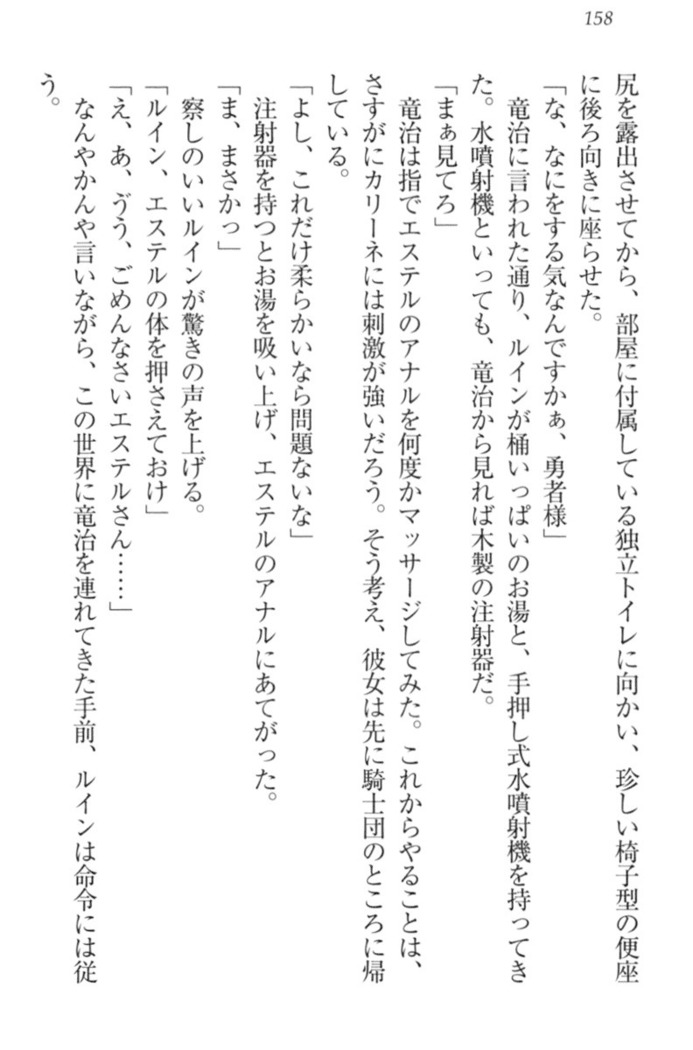 158
尻を露出させてから、部屋に付属している独立トイレに向かい、珍しい椅子型の便座
に後ろ向きに座らせた。
「な、なにをする気なんですかぁ、勇者様」
竜治に言われた通り、ルインが桶いっぱいのお湯と、手押し式水噴射機を持ってき
た。水噴射機といっても、竜治から見れば木製の注射器だ。
「まぁ見てろ」
竜治は指でエステルのアナルを何度かマッサージしてみた。これからやることは、
さすがにカリーネには刺激が強いだろう。そう考え、彼女は先に騎士団のところに帰
している。
「よし、これだけ柔らかいなら問題ないな」
注射器を持つとお湯を吸い上げ、エステルのアナルにあてがった。
「ま、まさかっ」
察しのいいルインが驚きの声を上げる。
「ルイン、エステルの体を押さえておけ」
「え、あ、ううっ、ごめんなさいエステルさん……」
なんやかんや言いながら、この世界に竜治を連れてきた手前、ルインは命令には従
う。